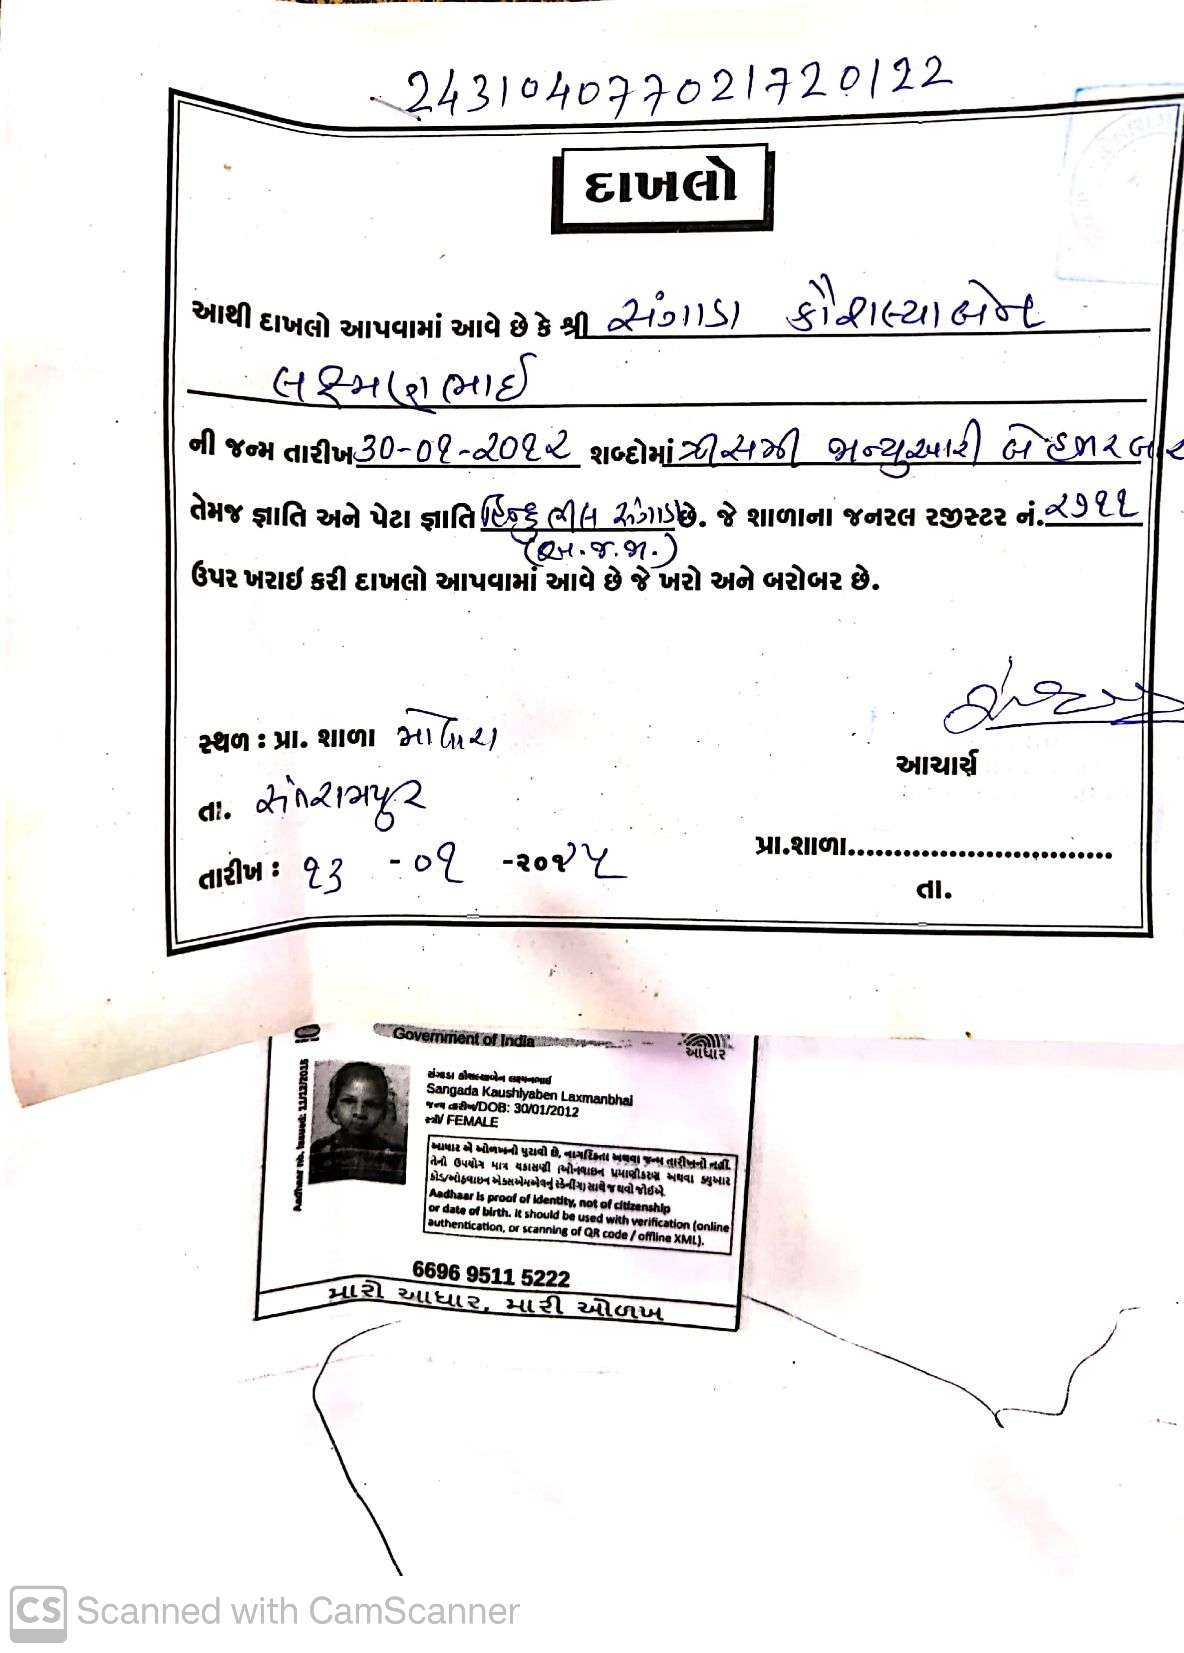 243104077021720122
દાખલો
આથી દાખલો આપવામાં આવે છે કે શ્રી સંગાડા કૌશલ્યાબેન
લક્ષ્મણભાઈ
ની જન્મ તારીખ 30-૦૧-૨૦૧૨ શબ્દોમાં ત્રીસમી જાન્યુઆરી બે હજાર બાર
તેમજ જ્ઞાતિ અને પેટા જ્ઞાતિ હિન્દુ ભીલ સંગાડા છે. જે શાળાના જનરલ રજીસ્ટર નં. ૨૭૧૧
(અ.જ.જા.)
ઉપર ખરાઇ કરી દાખલો આપવામાં આવે છે જે ખરો અને બરોબર છે.
સ્થળ : પ્રા. શાળા
આચાર્ય
તા. સંતરામપુર
પ્રા.શાળા..............................
તારીખ : ૧૩ -૦૧ -૨૦૨૫
તા.
Government of India
આધાર
Aadhaar no. issued: 11/12/2015
સંગાડા કૌશલ્યાબેન લક્ષ્મણભાઈ
Sangada Kaushlyaben Laxmanbhai
જન્મ તારીખ/DOB: 30/01/2012
સ્ત્રી/ FEMALE
આધાર એ ઓળખનો પુરાવો છે, નાગરિકતા અથવા જન્મ તારીખનો નહીં.
તેનો ઉપયોગ માત્ર ચકાસણી (ઓનલાઇન પ્રમાણીકરણ અથવા ક્યુઆર
કોડ/ઓફલાઇન એક્સએમએલનું સ્કેનીંગ) સાથે જ થવો જોઇએ.
Aadhaar is proof of identity, not of citizenship
or date of birth. It should be used with verification (online
authentication, or scanning of QR code / offline XML).
6696 9511 5222
મારો આધાર, મારી ઓળખ
CS Scanned with CamScanner